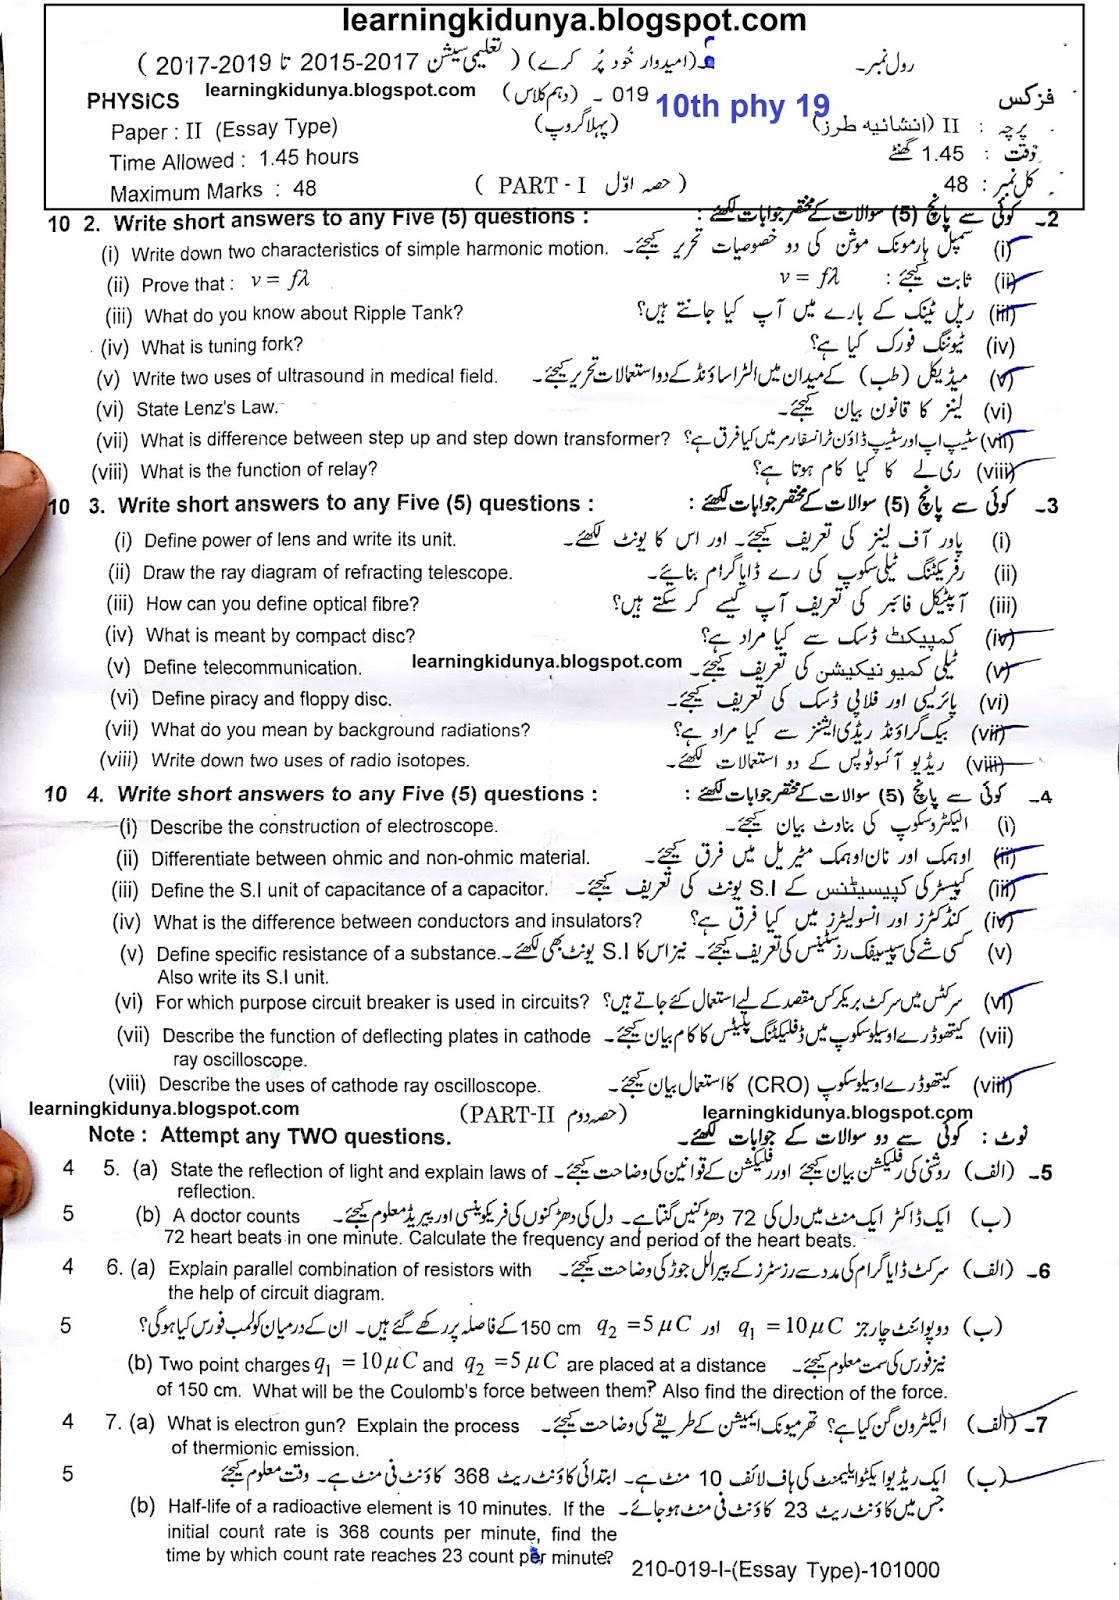 learningkidunya.blogspot.com
رول نمبر۔ ۔(امیدوار خُود پُر کرے) ( تعلیمی سیشن 2017-2015 تا 2019-2017 )
PHYSICS learningkidunya.blogspot.com 019 ۔ (دہم کلاس) 10th phy 19 فزکس
Paper : II (Essay Type) (پہلا گروپ) پرچہ : II (انشائیہ طرز)
Time Allowed : 1.45 hours وقت : 1.45 گھنٹے
Maximum Marks : 48 ( PART - I حصہ اوّل ) کل نمبر : 48
10 2. Write short answers to any Five (5) questions : 2۔ کوئی سے پانچ (5) سوالات کے مختصر جوابات لکھئے :
(i) Write down two characteristics of simple harmonic motion. سمپل ہارمونک موشن کی دو خصوصیات تحریر کیجئے۔ (i)
(ii) Prove that : v = fλ ثابت کیجئے : v = fλ (ii)
(iii) What do you know about Ripple Tank? رپل ٹینک کے بارے میں آپ کیا جانتے ہیں؟ (iii)
(iv) What is tuning fork? ٹیوننگ فورک کیا ہے؟ (iv)
(v) Write two uses of ultrasound in medical field. میڈیکل (طب) کے میدان میں الٹراساؤنڈ کے دو استعمالات تحریر کیجئے۔ (v)
(vi) State Lenz's Law. لینز کا قانون بیان کیجئے۔ (vi)
(vii) What is difference between step up and step down transformer? سٹیپ اپ اور سٹیپ ڈاؤن ٹرانسفارمر میں کیا فرق ہے؟ (vii)
(viii) What is the function of relay? ری لے کا کیا کام ہوتا ہے؟ (viii)
10 3. Write short answers to any Five (5) questions : 3۔ کوئی سے پانچ (5) سوالات کے مختصر جوابات لکھئے :
(i) Define power of lens and write its unit. پاور آف لینز کی تعریف کیجئے۔ اور اس کا یونٹ لکھئے۔ (i)
(ii) Draw the ray diagram of refracting telescope. رفریکٹنگ ٹیلی سکوپ کی رے ڈایاگرام بنائیے۔ (ii)
(iii) How can you define optical fibre? آپٹیکل فائبر کی تعریف آپ کیسے کر سکتے ہیں؟ (iii)
(iv) What is meant by compact disc? کمپیکٹ ڈسک سے کیا مراد ہے؟ (iv)
(v) Define telecommunication. learningkidunya.blogspot.com ٹیلی کمیونیکیشن کی تعریف کیجئے۔ (v)
(vi) Define piracy and floppy disc. پائریسی اور فلاپی ڈسک کی تعریف کیجئے۔ (vi)
(vii) What do you mean by background radiations? بیک گراؤنڈ ریڈی ایشنز سے کیا مراد ہے؟ (vii)
(viii) Write down two uses of radio isotopes. ریڈیو آئسوٹوپس کے دو استعمالات لکھئے۔ (viii)
10 4. Write short answers to any Five (5) questions : 4۔ کوئی سے پانچ (5) سوالات کے مختصر جوابات لکھئے :
(i) Describe the construction of electroscope. الیکٹروسکوپ کی بناوٹ بیان کیجئے۔ (i)
(ii) Differentiate between ohmic and non-ohmic material. اوہمک اور نان اوہمک مٹیریل میں فرق کیجئے۔ (ii)
(iii) Define the S.I unit of capacitance of a capacitor. کپیسٹر کی کپیسیٹنس کے S.I یونٹ کی تعریف کیجئے۔ (iii)
(iv) What is the difference between conductors and insulators? کنڈکٹرز اور انسولیٹرز میں کیا فرق ہے؟ (iv)
(v) Define specific resistance of a substance. کسی شے کی سپیسیفک رزسٹینس کی تعریف کیجئے۔ نیز اس کا S.I یونٹ بھی لکھئے۔ (v)
Also write its S.I unit.
(vi) For which purpose circuit breaker is used in circuits? سرکٹس میں سرکٹ بریکر کس مقصد کے لیے استعمال کئے جاتے ہیں؟ (vi)
(vii) Describe the function of deflecting plates in cathode کیتھوڈ رے اوسیلوسکوپ میں ڈفلیکٹنگ پلیٹس کا کام بیان کیجئے۔ (vii)
ray oscilloscope.
(viii) Describe the uses of cathode ray oscilloscope. کیتھوڈ رے اوسیلوسکوپ (CRO) کا استعمال بیان کیجئے۔ (viii)
learningkidunya.blogspot.com (PART-II حصہ دوم) learningkidunya.blogspot.com
Note : Attempt any TWO questions. نوٹ : کوئی سے دو سوالات کے جوابات لکھئے۔
4 5. (a) State the reflection of light and explain laws of 5۔ (الف) روشنی کی رفلیکشن بیان کیجئے اور رفلیکشن کے قوانین کی وضاحت کیجئے۔
reflection.
5 (b) A doctor counts (ب) ایک ڈاکٹر ایک منٹ میں دل کی 72 دھڑکنیں گنتا ہے۔ دل کی دھڑکنوں کی فریکوئنسی اور پیریڈ معلوم کیجئے۔
72 heart beats in one minute. Calculate the frequency and period of the heart beats.
4 6. (a) Explain parallel combination of resistors with 6۔ (الف) سرکٹ ڈایاگرام کی مدد سے رزسٹرز کے پیرالل جوڑ کی وضاحت کیجئے۔
the help of circuit diagram.
5 (ب) دو پوائنٹ چارجز q1 = 10μC اور q2 = 5μC 150 cm کے فاصلہ پر رکھے گئے ہیں۔ ان کے درمیان کولمب فورس کیا ہوگی؟
(b) Two point charges q1 = 10μC and q2 = 5μC are placed at a distance نیز فورس کی سمت معلوم کیجئے۔
of 150 cm. What will be the Coulomb's force between them? Also find the direction of the force.
4 7. (a) What is electron gun? Explain the process 7۔ (الف) الیکٹرون گن کیا ہے؟ تھرمیونک ایمیشن کے طریقے کی وضاحت کیجئے۔
of thermionic emission.
5 (ب) ایک ریڈیو ایکٹو ایلیمنٹ کی ہاف لائف 10 منٹ ہے۔ ابتدائی کاؤنٹ ریٹ 368 کاؤنٹ فی منٹ ہے۔ وقت معلوم کیجئے
(b) Half-life of a radioactive element is 10 minutes. If the جس میں کاؤنٹ ریٹ 23 کاؤنٹ فی منٹ ہو جائے۔
initial count rate is 368 counts per minute, find the
time by which count rate reaches 23 count per minute?
210-019-I-(Essay Type)-101000